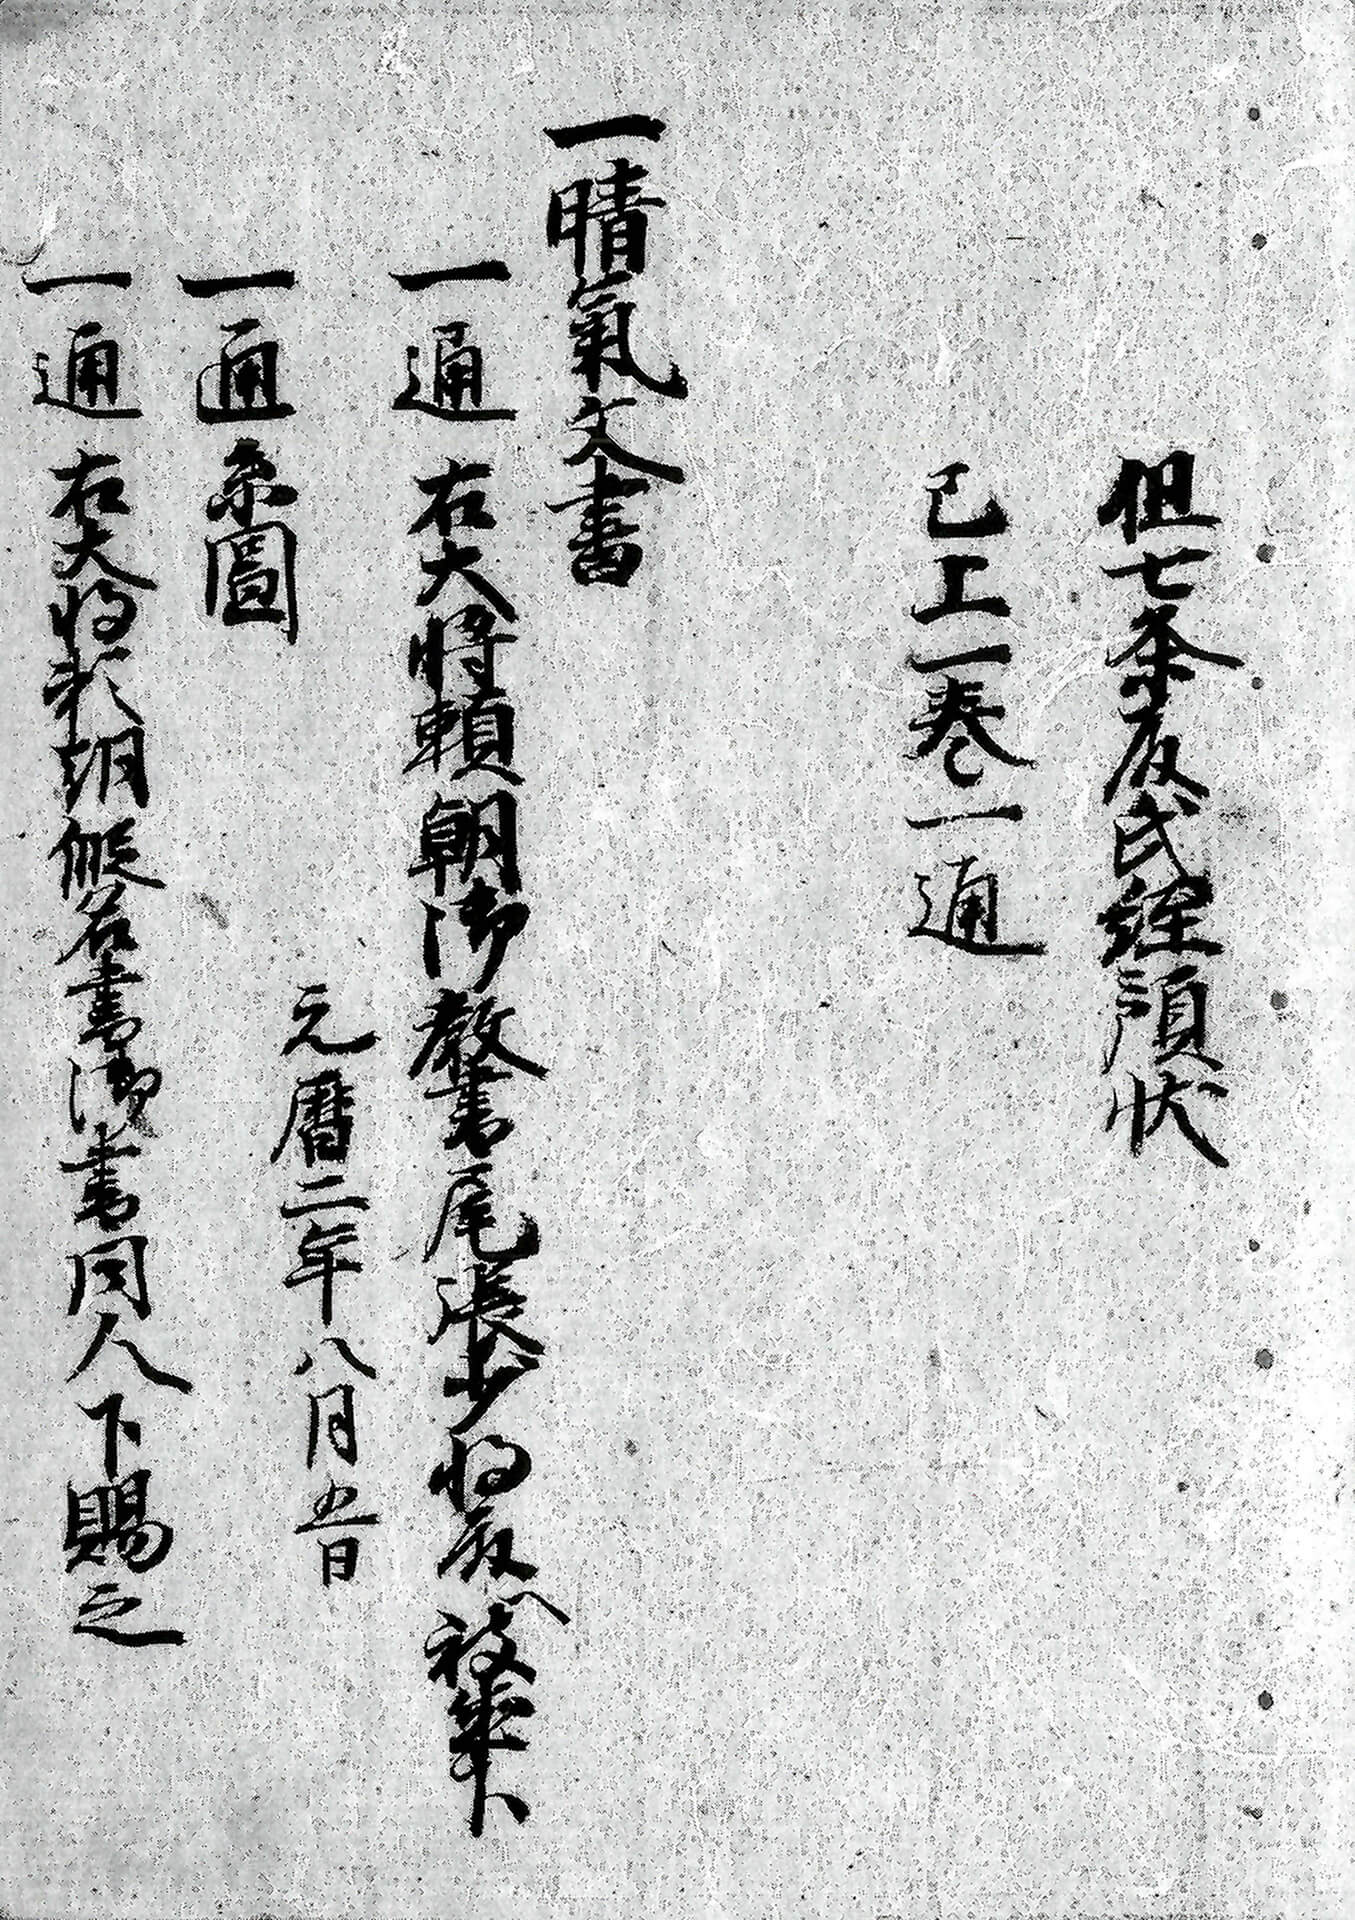 但七条殿氏経預状
已上一巻一通
一晴氣文書
一通右大将頼朝御教書尾張少将殿へ被進卜
元暦二年八月五日
一通系圖
一通右大将頼朝仮名書御書同人下賜之